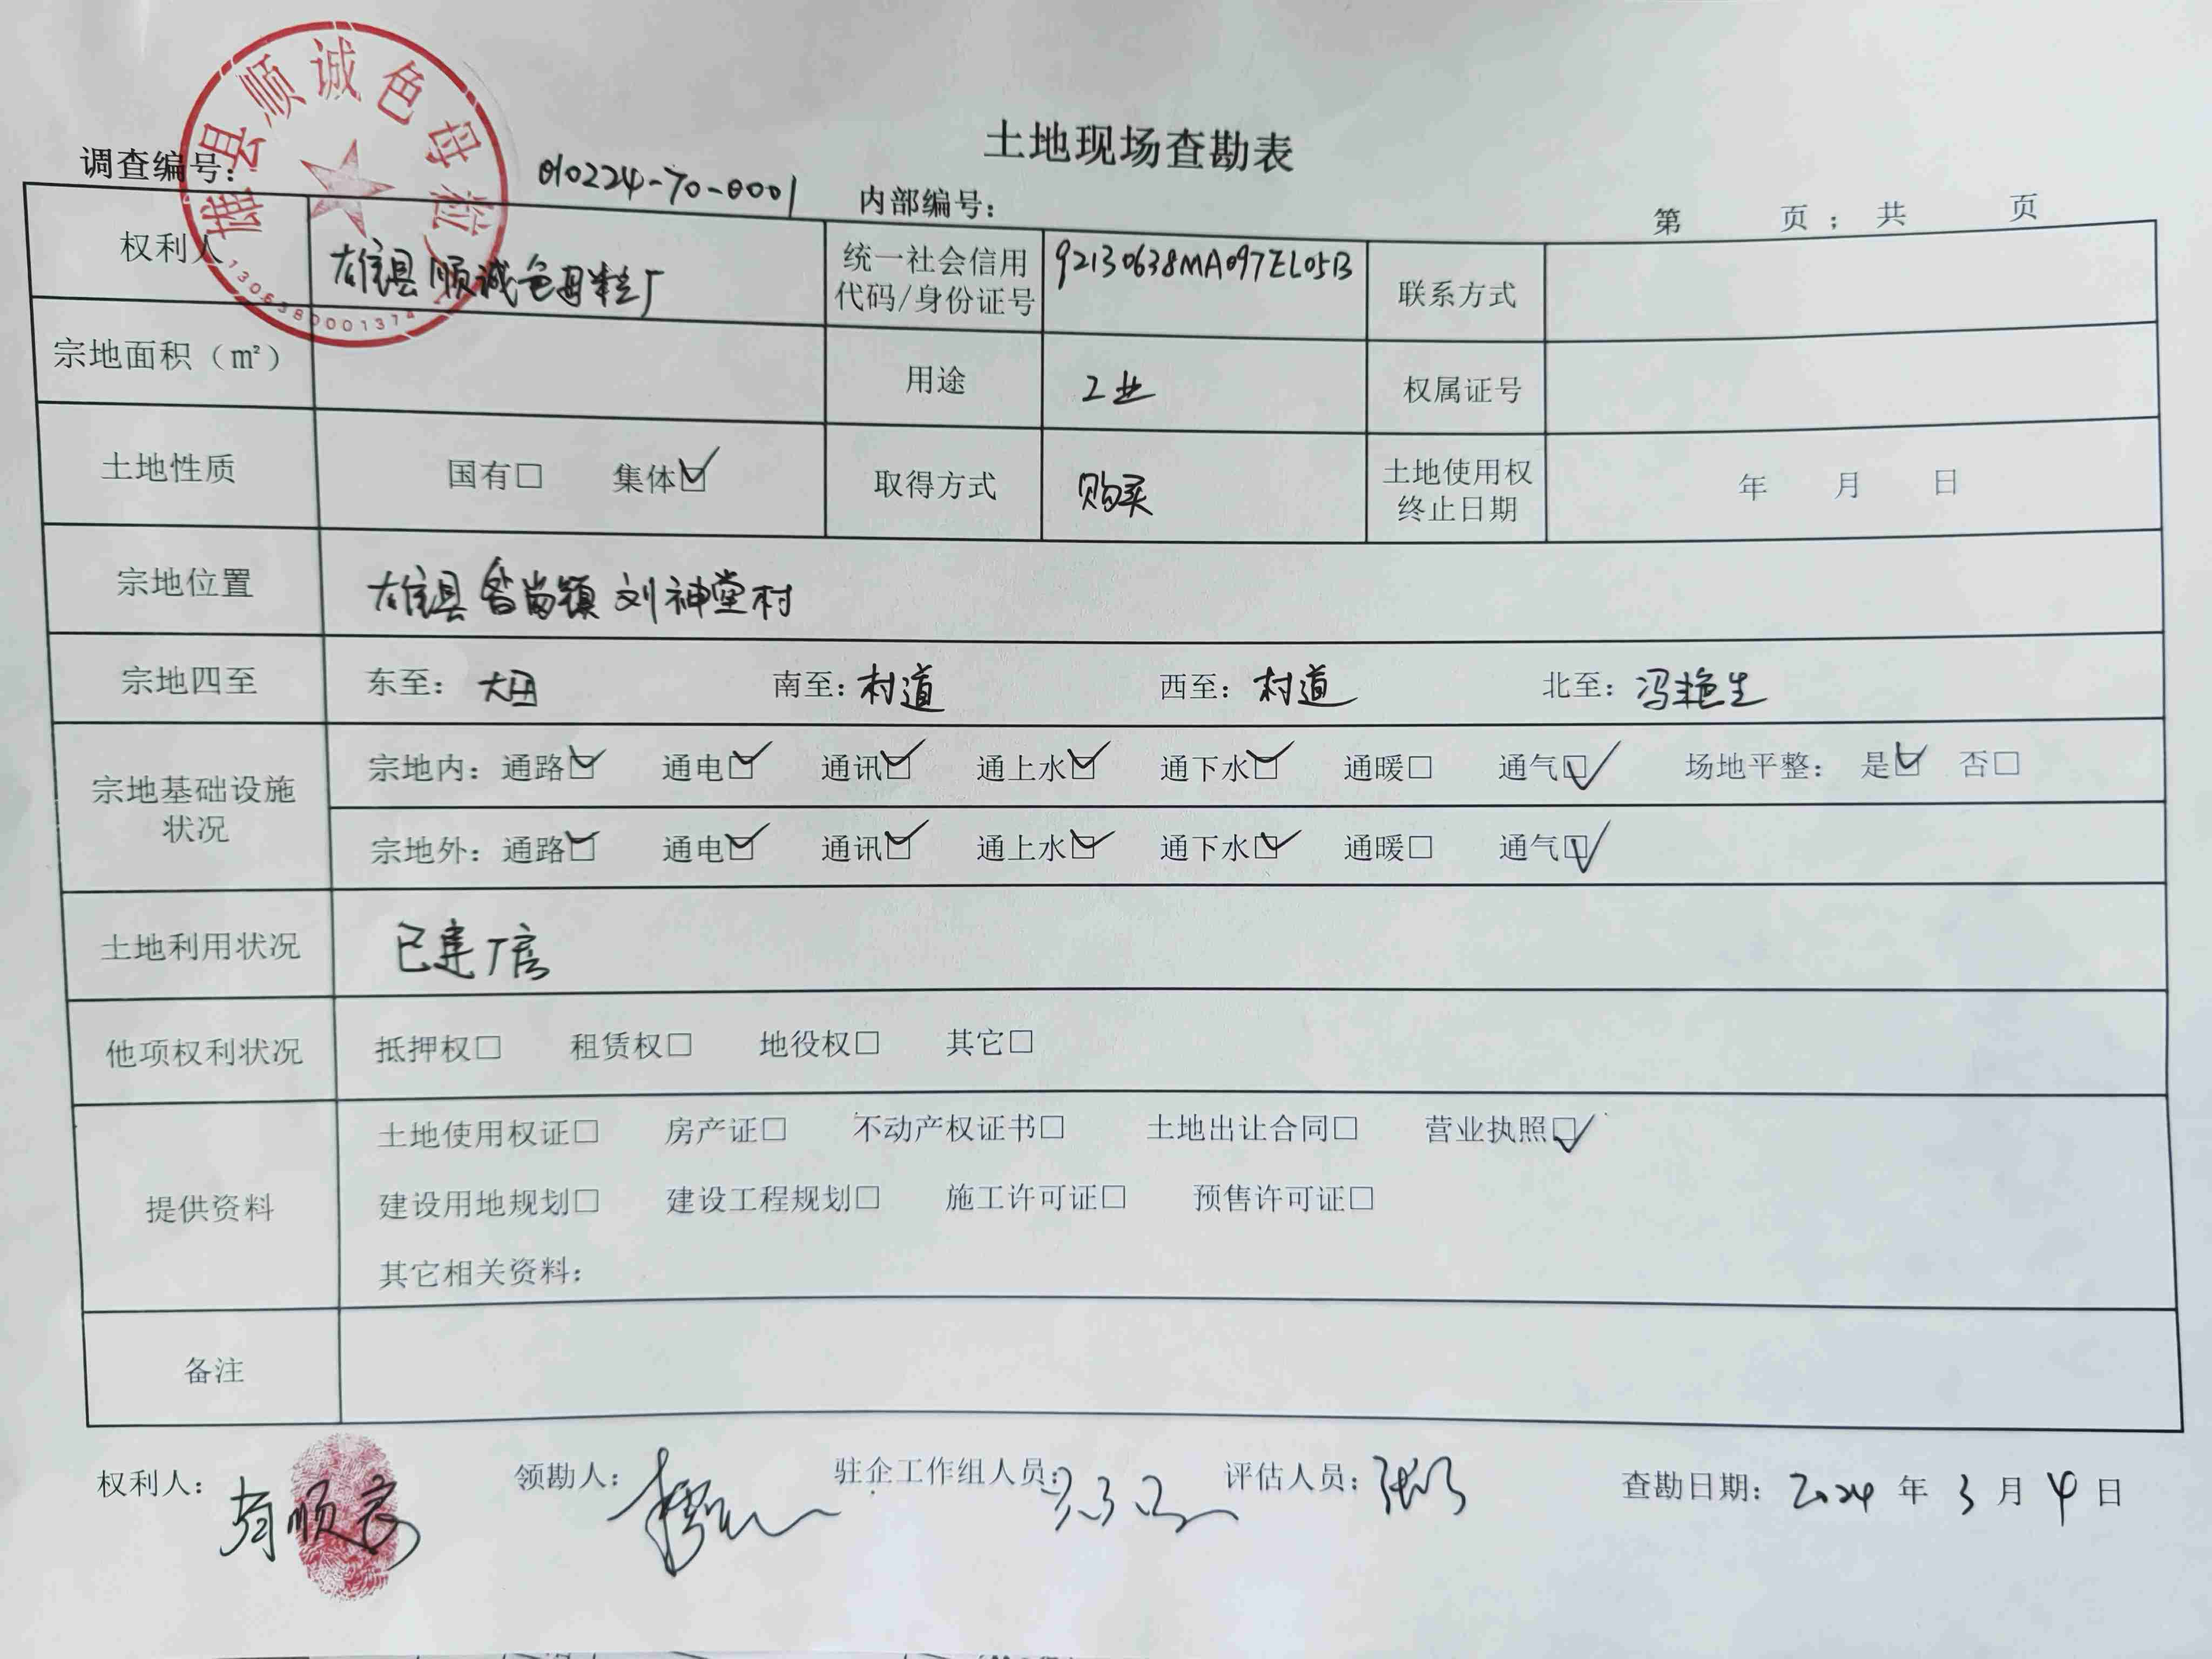 雄县顺诚色母粒厂
1306380001374
土地现场查勘表
调查编号: 010224-70-0001 内部编号: 第 页；共 页
权利人 雄县顺诚色母粒厂 统一社会信用代码/身份证号 92130638MA097EL05B 联系方式
宗地面积（㎡） 用途 工业 权属证号
土地性质 国有□ 集体☑ 取得方式 购买 土地使用权终止日期 年 月 日
宗地位置 雄县昝岗镇刘神堂村
宗地四至 东至: 大田 南至: 村道 西至: 村道 北至: 冯艳生
宗地基础设施状况 宗地内: 通路☑ 通电☑ 通讯☑ 通上水☑ 通下水☑ 通暖□ 通气☑ 场地平整: 是☑ 否□
宗地外: 通路☑ 通电☑ 通讯☑ 通上水☑ 通下水☑ 通暖□ 通气☑
土地利用状况 已建厂房
他项权利状况 抵押权□ 租赁权□ 地役权□ 其它□
提供资料 土地使用权证□ 房产证□ 不动产权证书□ 土地出让合同□ 营业执照☑
建设用地规划□ 建设工程规划□ 施工许可证□ 预售许可证□
其它相关资料:
备注
权利人: 领勘人: 驻企工作组人员: 评估人员: 查勘日期: 2024 年 3 月 4 日